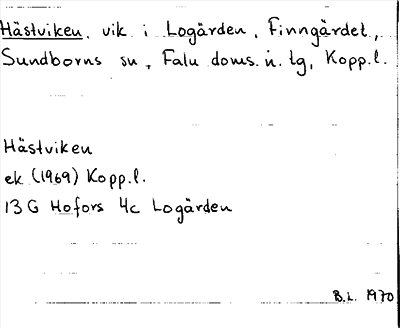 Hästviken, vik i Logärden, Finngärdet,
Sundborns sn, Falu doms. n. tg, Kopp. l.
Hästviken
ek (1969) Kopp. l.
13 G Hofors 4c Logärden
B.L. 1970